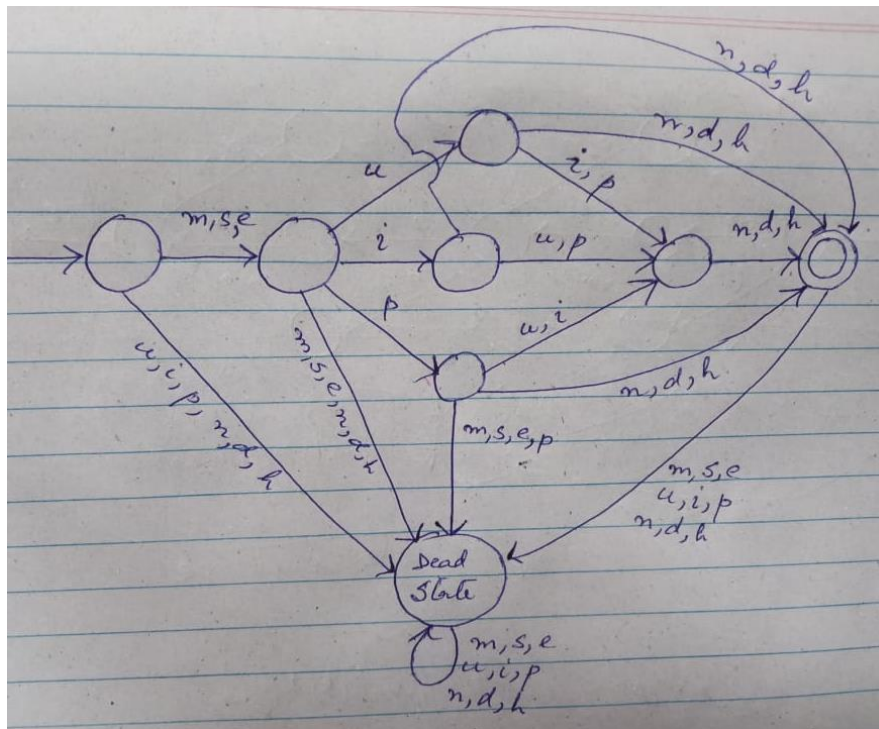 n,d,h
n,d,h
u
i,p
m,s,e
i
u,p
n,d,h
p
u,i
n,d,h
u,i,p,n,d,h
m,s,e,n,d,h
m,s,e,p
m,s,e
u,i,p
n,d,h
Dead
State
m,s,e
u,i,p
n,d,h